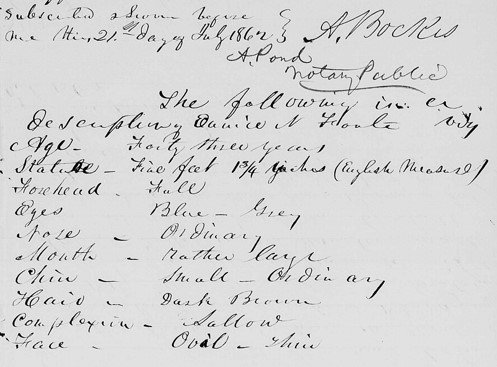 Subscribed & Sworn before
me this 21st day of July 1862 } A. Bockes
A. Pond
Notary Public
The following is a
description of Eunice N Foote viz
Age - Forty three years
Stature - Five feet 1 3/4 inches (English Measure)
Forehead - Full
Eyes Blue - Grey
Nose - Ordinary
Mouth - Rather large
Chin - Small - Ordinary
Hair - Dark Brown
Complexion - Sallow
Face - Oval - thin